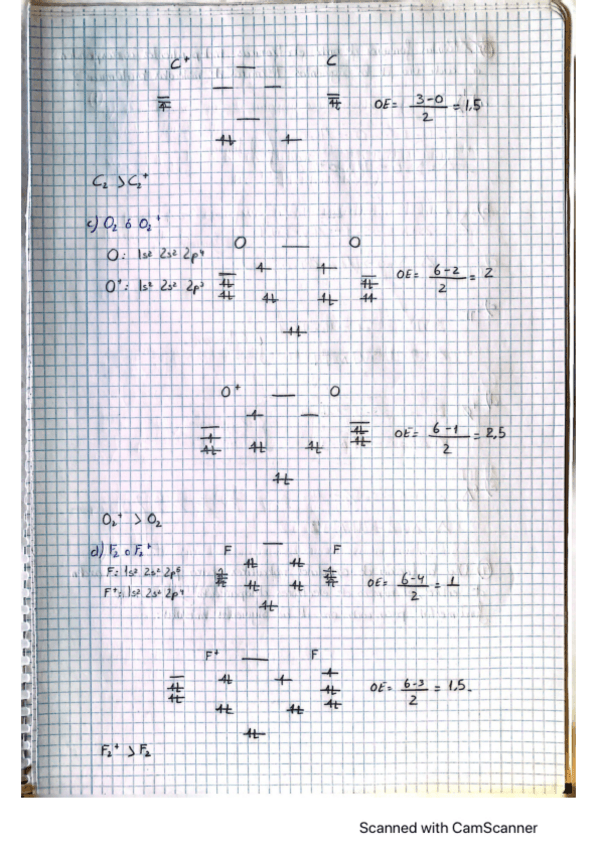 C⁺ C
OE = 3-0/2 = 1,5
C₂ > C₂⁺
c) O₂ ó O₂⁺
O O
O: 1s² 2s² 2p⁴
O⁺: 1s² 2s² 2p³
OE = 6-2/2 = 2
O⁺ O
OE = 6-1/2 = 2,5
O₂⁺ > O₂
d) F₂ o F₂⁺
F F
F: 1s² 2s² 2p⁵
F⁺: 1s² 2s² 2p⁴
OE = 6-4/2 = 1
F⁺ F
OE = 6-3/2 = 1,5.
F₂⁺ > F₂
Scanned with CamScanner